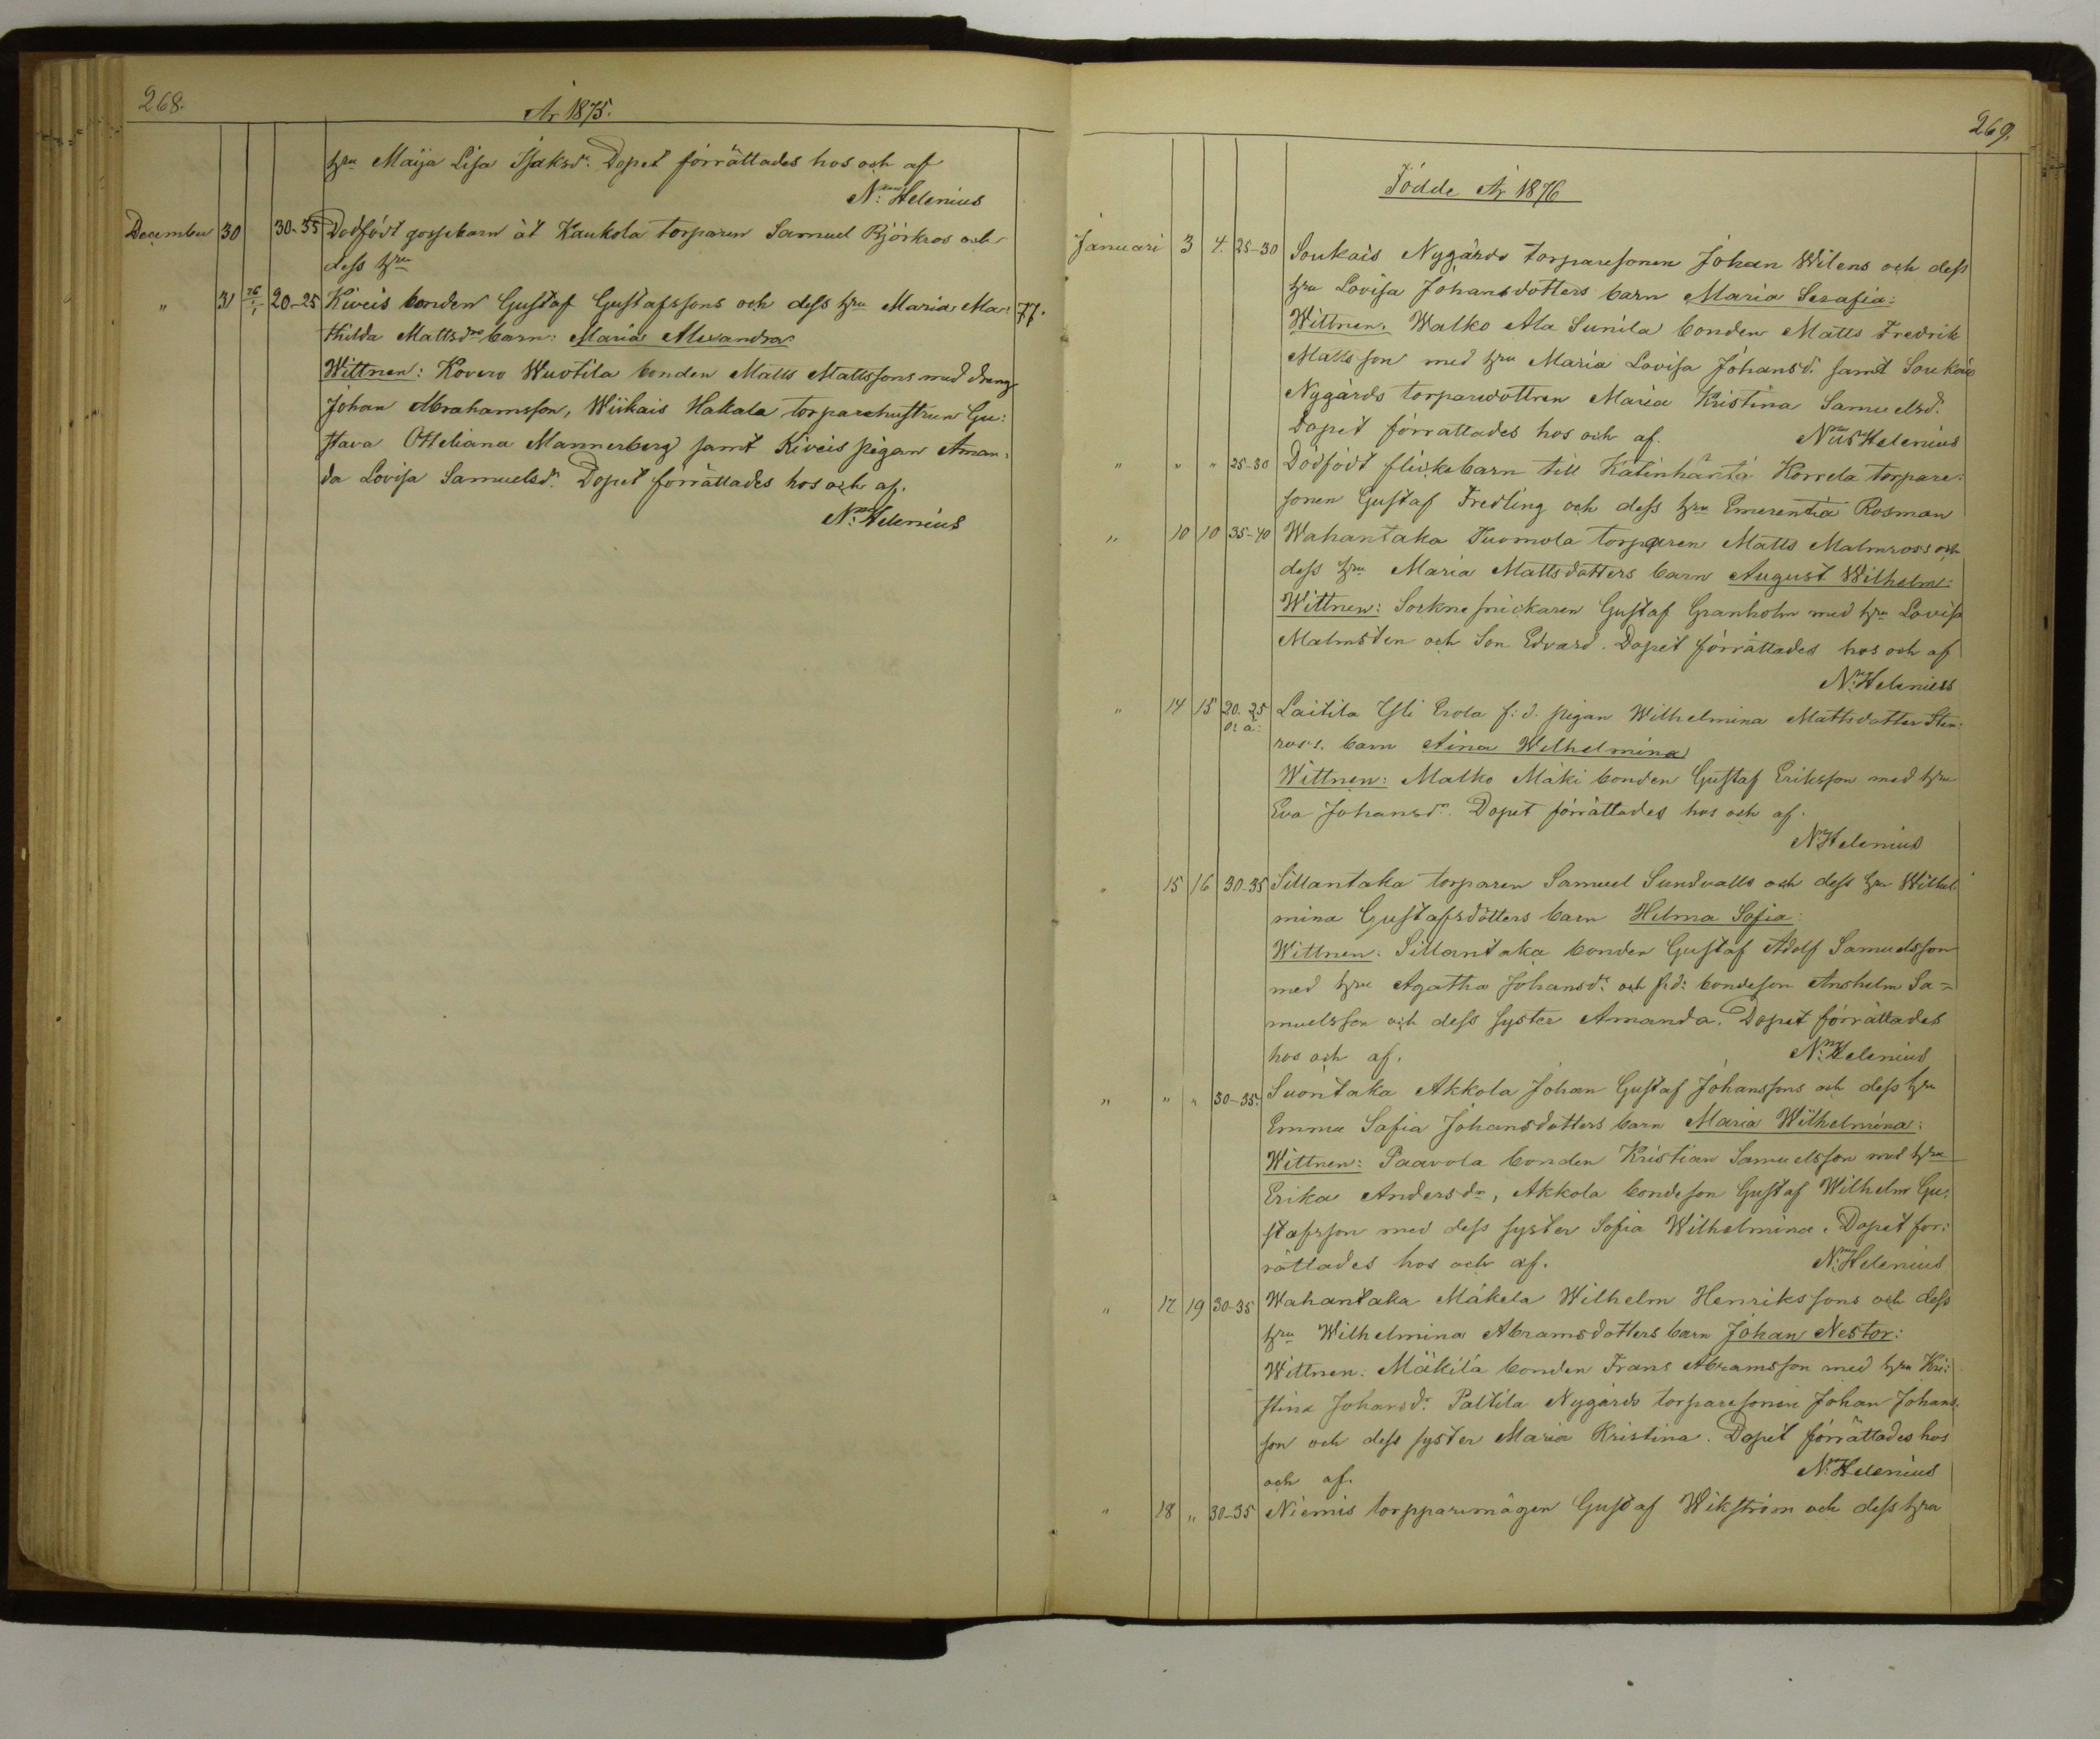 268.
År 1875.
hru Maija Lisa Isaksdr. Dopet förrättades hos och af
N: Helenius
December 30 30-35 Dödfödt gossebarn åt Kaukola torparen Samuel Björkros och
dess hru
" 31 76/1 20-25 Kiveis bonden Gustaf Gustafssons och dess hru Maria Ma- 77.
thilda Mattsdrs barn: Maria Alexandra
Wittnen: Kovero Wuotila bonden Matts Mattssons med dreng
Johan Abrahamsson, Wiikais Hakala torparehustrun Gu:
stava Otteliana Mannerberg samt Kiveis pigan Aman:
da Lovisa Samuelsdr. Dopet förrättades hos och af.
N: Helenius
269.
Födde År 1876
Januari 3 4. 25-30 Soukais Nygårds torparesonen Johan Wilens och dess
hru Lovisa Johansdotters barn Maria Serafia:
Wittnen. Walko Ala Sunila bonden Matts Fredrik
Mattsson med hru Maria Lovisa Johansd. samt Soukais
Nygårds torparedottren Maria Kristina Samuelsd.
Dopet förrattades hos och af. Nus Helenius
" " " 25-30 Dödfödt flickebarn till Katinhänta Korrela torpare:
sonen Gustaf Fredling och dess hru Emerentia Rosman
" 10 10 35-40 Wahantaka Tuomola torparen Matts Malmross och
dess hru Maria Mattsdotters barn August Wilhelm:
Wittnen: Sockne snickaren Gustaf Granholm med hru Lovisa
Malmsten och Son Edvard. Dopet förrättades hos och af
N: Helenius
" 14 15 20-25 Laitila Ylli Erola f.d. pigan Wilhelmina Mattsdotter Sten:
o: ä: ross's. barn Aina Wilhelmina
Wittnen: Malko Mäki bonden Gustaf Eriksson med hru
Eva Johansdr. Dopet förrättades hos och af.
N: Helenius
" 15 16 30-35 Sillantaka torparen Samuel Sundvalls och dess hru Wilhel
mina Gustafsdotters barn Hilma Sofia:
Wittnen: Sillantaka bonden Gustaf Adolf Samuelsson
med hru Agatha Johansdr. och f.d: bondeson Anshelm Sa=
muelsson och dess syster Amanda. Dopet förrättades
hos och af. N: Helenius
" " " 30-35. Suontaka Akkola Johan Gustaf Johanssons och dess hru
Emma Sofia Johansdotters barn Maria Wilhelmina:
Wittnen: Paavola bonden Kristian Samuelsson med hru
Erika Andersdr, Akkola bondeson Gustaf Wilhelm Gu:
stafsson med dess syster Sofia Wilhelmina. Dopet for:
rättades hos och af. N: Helenius
" 17 19 30-35 Wahantaka Mäkela Wilhelm Henrikssons och dess
hru Wilhelmina Abramsdotters barn Johan Nestor:
Wittnen. Mäkilä bonden Frans Abramsson med hru Kri:
stina Johansdr. Paltila Nygårds torparesonen Johan Johans.
son och dess syster Maria Kristina. Dopet förrättades hos
och af. N: Helenius
" 18 " 30-35 Niemis torpparemågen Gustaf Wikström och dess hru